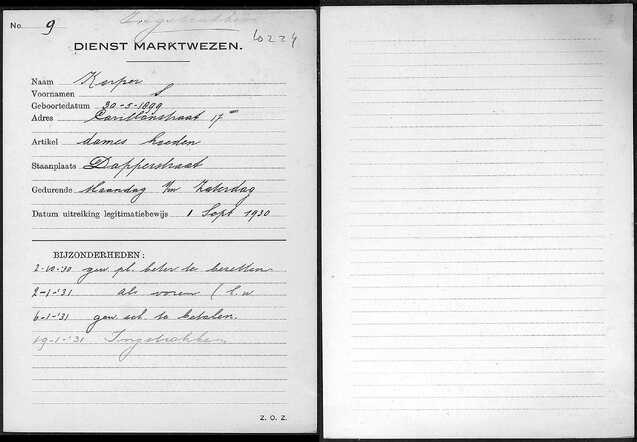 No. 9 Ingetrokken
60224
DIENST MARKTWEZEN.
Naam Kerper
Voornamen S
Geboortedatum 30-5-1899
Adres Carillonstraat 17 III
Artikel dames hoeden
Staanplaats Dapperstraat
Gedurende Maandag t/m Zaterdag
Datum uitreiking legitimatiebewijs 1 Sept 1930
BIJZONDERHEDEN:
2-10-30 gew. pl. beter te bezetten
2-1-'31 als voren
6-1-'31 te betalen.
19-1-'31 Ingetrokken
Z. O. Z.